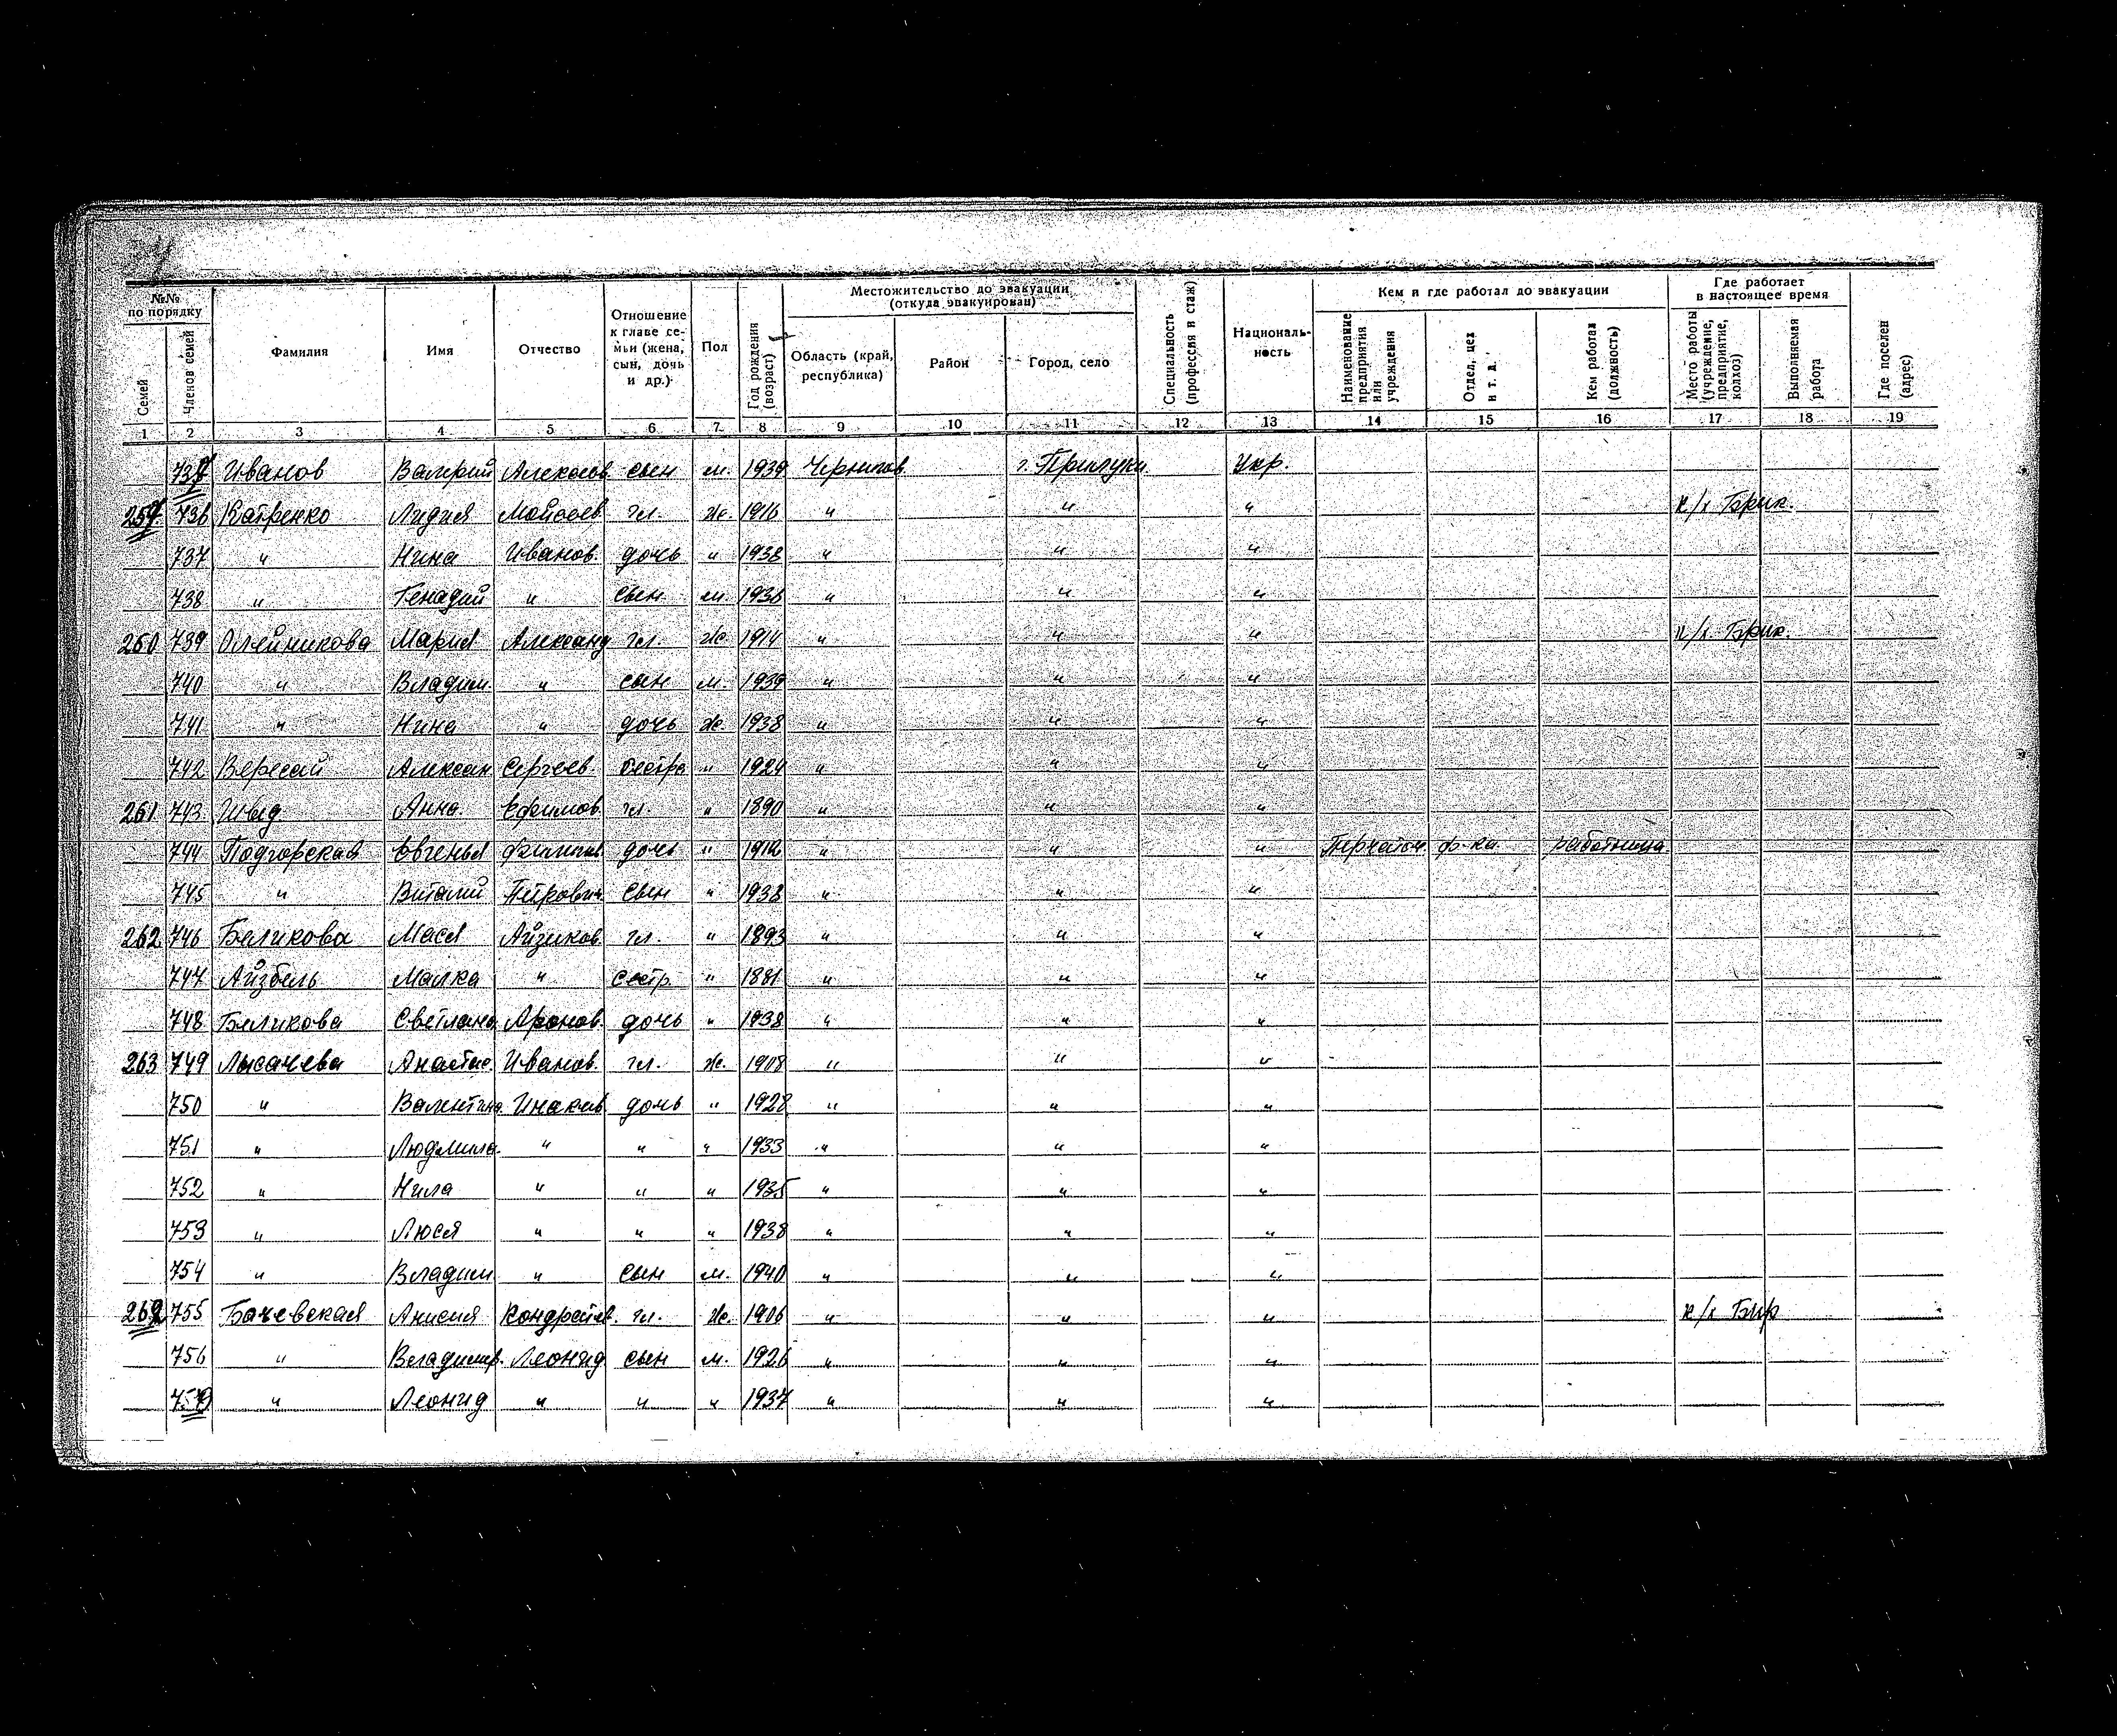 №№ по порядку Местожительство до эвакуации (откуда эвакуирован) Кем и где работал до эвакуации Где работает в настоящее время
Семей Членов семей Фамилия Имя Отчество Отношение к главе семьи (жена, сын, дочь и др.) Пол Год рождения (возраст) Область (край, республика) Район Город, село Специальность (профессия и стаж) Националь-ность Наименование предприятия или учреждения Отдел, цех и т. д. Кем работал (должность) Место работы (учреждение, предприятие, колхоз) Выполняемая работа Где поселен (адрес)
1 2 3 4 5 6 7 8 9 10 11 12 13 14 15 16 17 18 19
Иванов Валерий Алексеев. сын м. 1939 Чернигов. г. Прилуки Укр.
259 736 Катренко Лидия Мойсеев. гл. ж. 1916 " " " к/х Брик.
737 " Нина Иванов. дочь " 1938 " " "
738 " Генадий " сын м. 1936 " " "
260 739 Олейникова Мария Александ. гл. ж. 1914 " " " к/х. Брик.
740 " Владим. " сын м. 1939 " " "
741 " Нина " дочь ж. 1938 " " "
742 Вересай Алексан. Сергеев. сестра " 1924 " " "
261 743 Швид Анна Ефимов. гл. " 1890 " " "
744 Подгорская Евгенья Филипов. дочь " 1912 " " " Перчаточ. ф-ка. работница.
745 " Виталий Петрович сын " 1938 " " "
262 746 Беликова Мася Айзиков. гл. " 1893 " " "
747 Айзбель Малка " сестр. " 1881 " " "
748 Беликова Светлана Аронов. дочь " 1938 " " "
263 749 Лысачева Анастас. Иванов. гл. ж. 1908 " " "
750 " Валентина Инакив. дочь " 1928 " " "
751 " Людмила. " " " 1933 " " "
752 " Нила " " " 1935 " " "
753 " Люся " " " 1938 " " "
754 " Владим. " сын м. 1940 " " "
264 755 Бачевская Анисия Кондратьев. гл. ж. 1906 " " " к/х Бир
756 " Владимир. Леонид. сын м. 1926 " " "
" Леонид " " " 1937 " " "